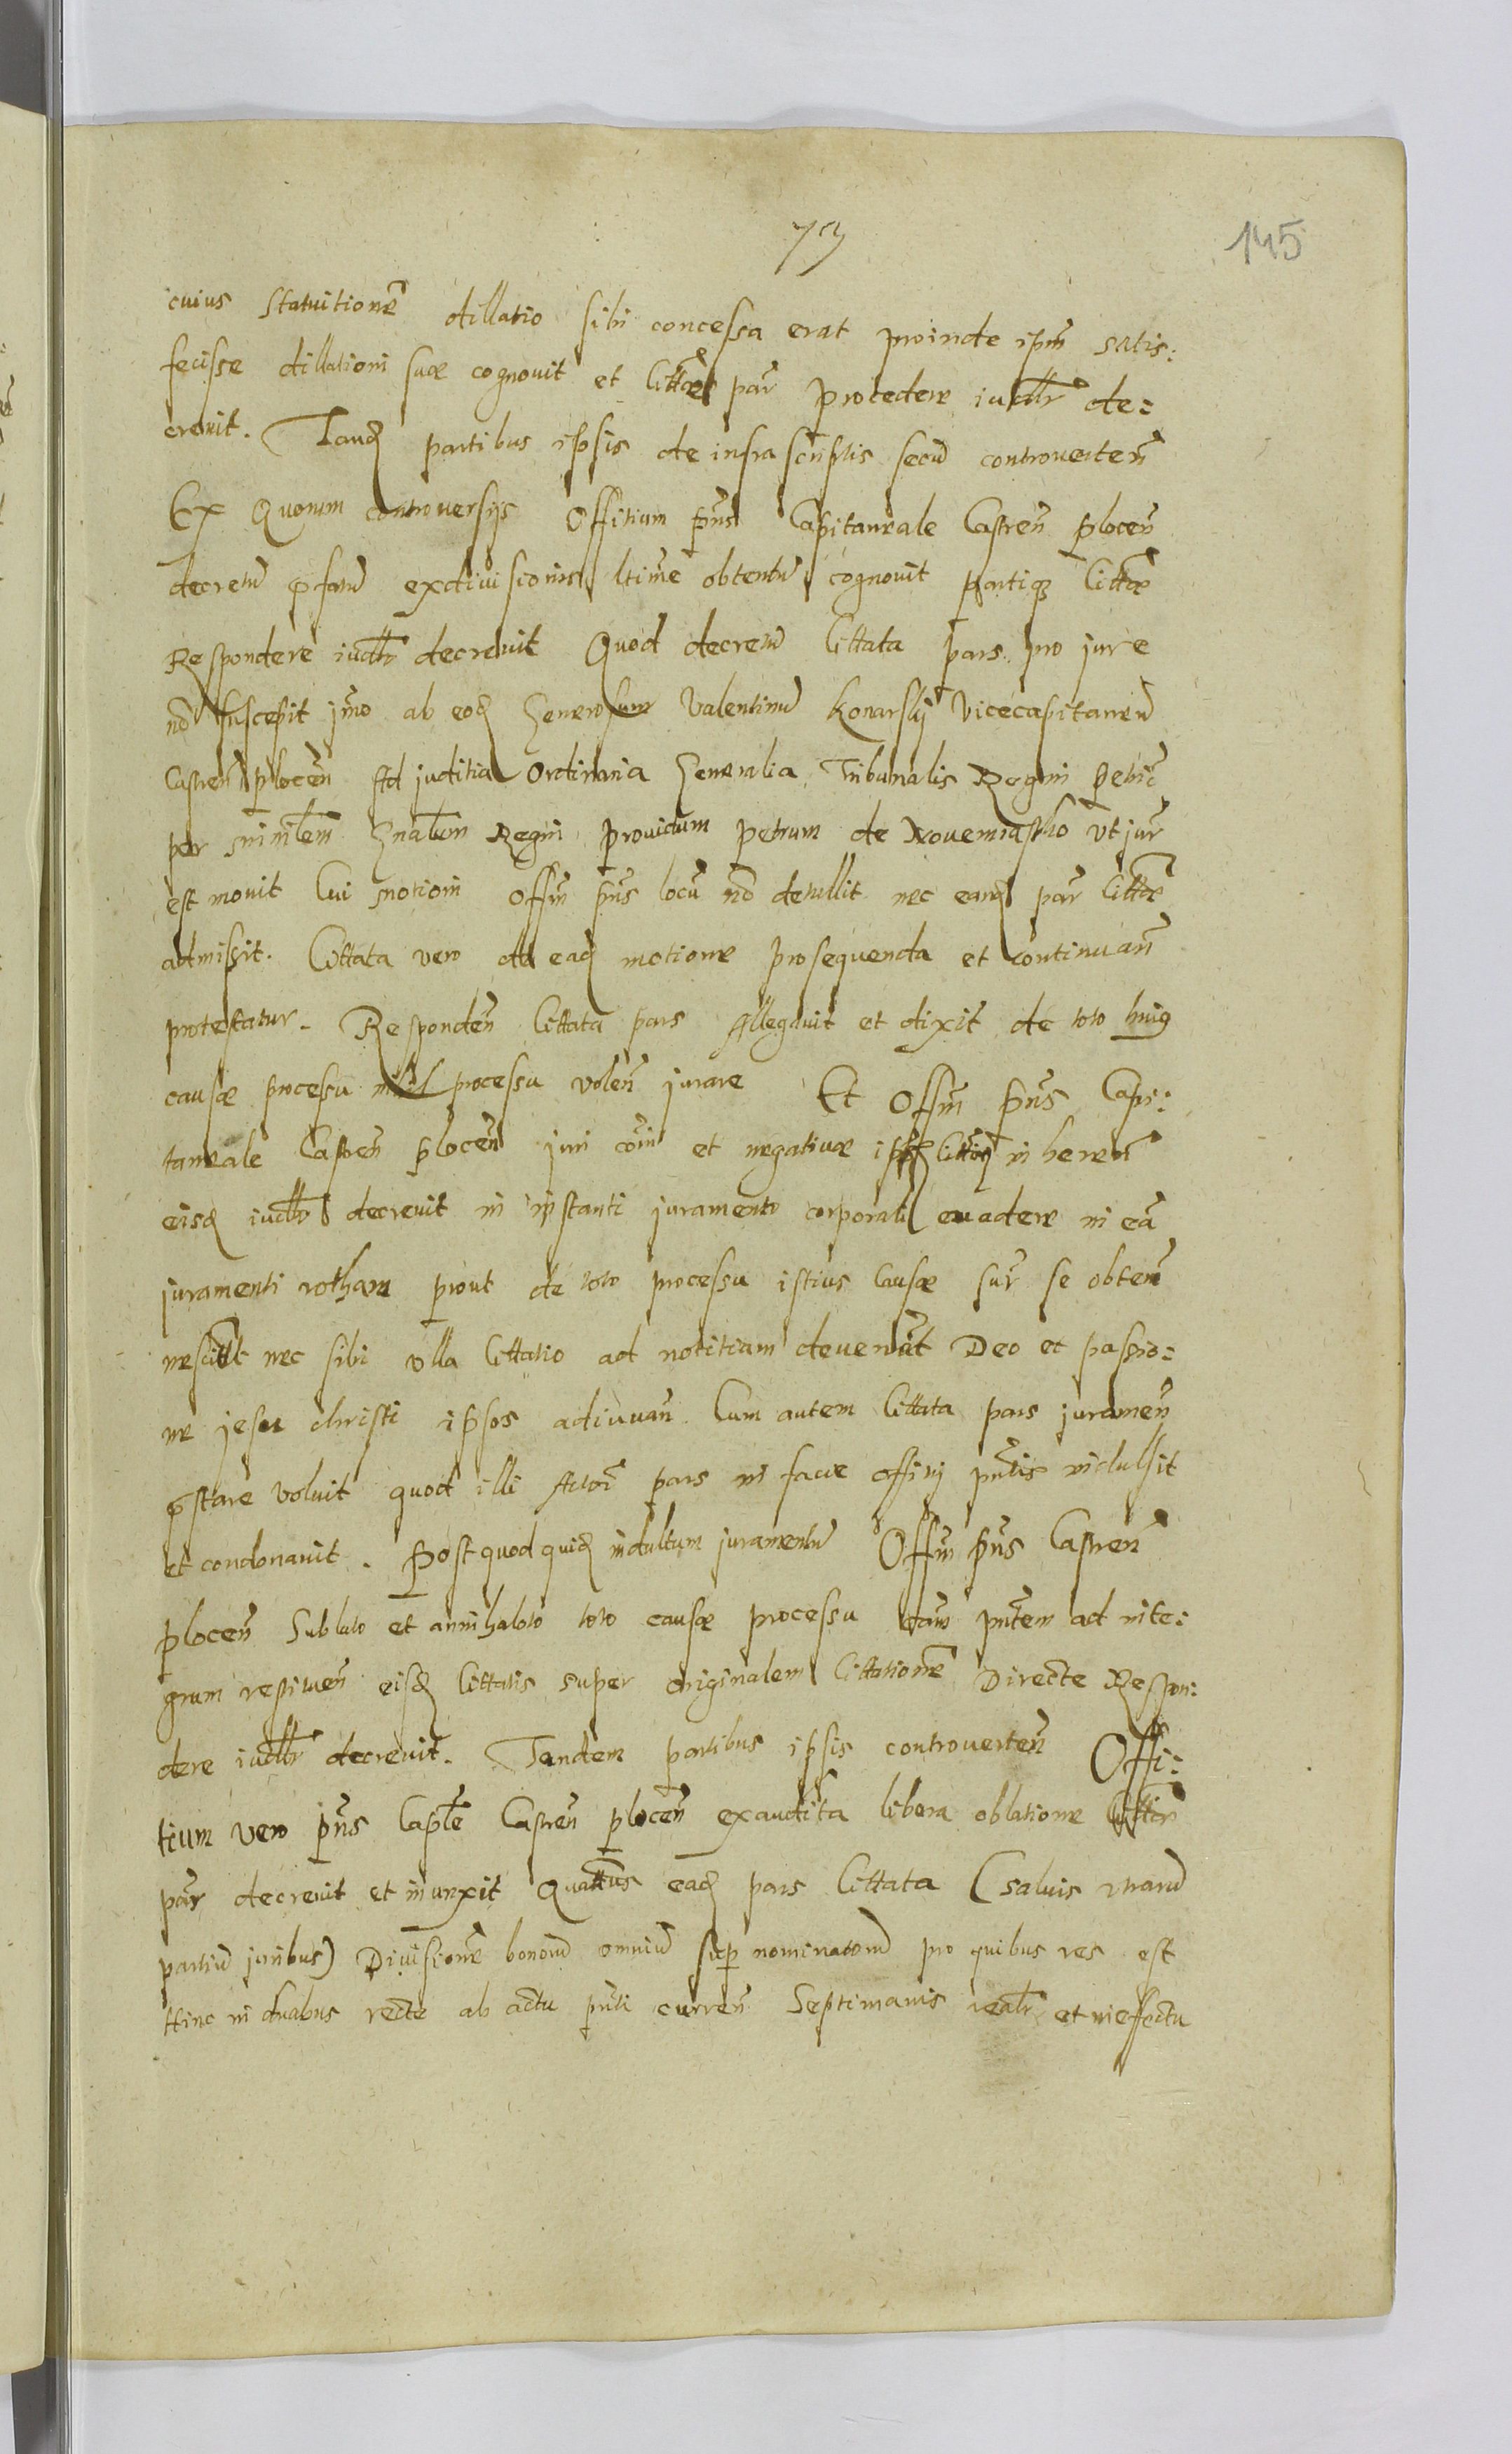 73
145
cuius statuitionē dillatio sibi concessa erat proinde ipm̄ satis:
fecisse dillationi suæ cognouit et littæ par̄ procedere iudlr̄ de:
creuit. Tand partibus ipsis de infrascriptis secū controuerten̄
Ex Quorum controuersijs Offitium pn̄s Capitaneale Castren̄ plocen̄
decretū p̄fatū exdiuisionis ltime obtentū cognouit partiq littæ
Respondere iudlr̄ decreuit Quod decretū littata pars pro jure
nō suscepit jmo ab eod Generosum Valentinū Konarskj Vicecapitaneū
Castren̄ plocen̄ Ad juditia Ordinaria Generalia Tribunalis Regni Petric
per ministem Gnalem Regni prouidum petrum de Novemiastho vt jur̄
est mouit Cui motioni Offm̄ pn̄s locū nō detullit nec eand par̄ littæ
admissit. Cittata vero de ead motione prosequenda et continuan̄
protestatur. Responden̄ littata pars Allegauit et dixit de toto huiq
causæ processu nihil processu volen̄ jurare Et Offm̄ pn̄s Capi:
taneale Castren̄ plocen̄ juri cōi et negatiuæ ipsor littor inheren̄
eisd iudlr̄ decreuit in instanti juramento corporali euadere in eā
juramenti rotham prout de toto processu istius causæ sup̄ se obten̄
nesciūt nec sibi vlla littatio ad notitiam deuenit Deo et passio:
ne jesu christi ipsos adiuuan̄ Cum autem littata pars juramen̄
p̄stare voluit quod illi Actor̄ pars in facie offitij pn̄tis indulsit
et condonauit. Postquod quid indultum juramentū Offm̄ pn̄s Castren̄
plocen̄ Sublato et annihilato toto causæ processu pn̄tem ad inte:
grum restituen̄ eisd littatis super originalem littationē Directe Respon:
dere iudlr̄ decreuit. Tandem partibus ipsis controuerten̄ Offi:
tium vero pn̄s Caplē Castren̄ plocen̄ exaudita libera oblatione littæ
par̄ decreuit et iniunxit Quattn̄s ead pars littata (saluis vtrarū
partiū juribus) Diuisionē bonorū omniū sup nominatorū pro quibus res est
Hinc in duabus recte ab actu pn̄ti curren̄ Septimanis realr̄ et in effectu